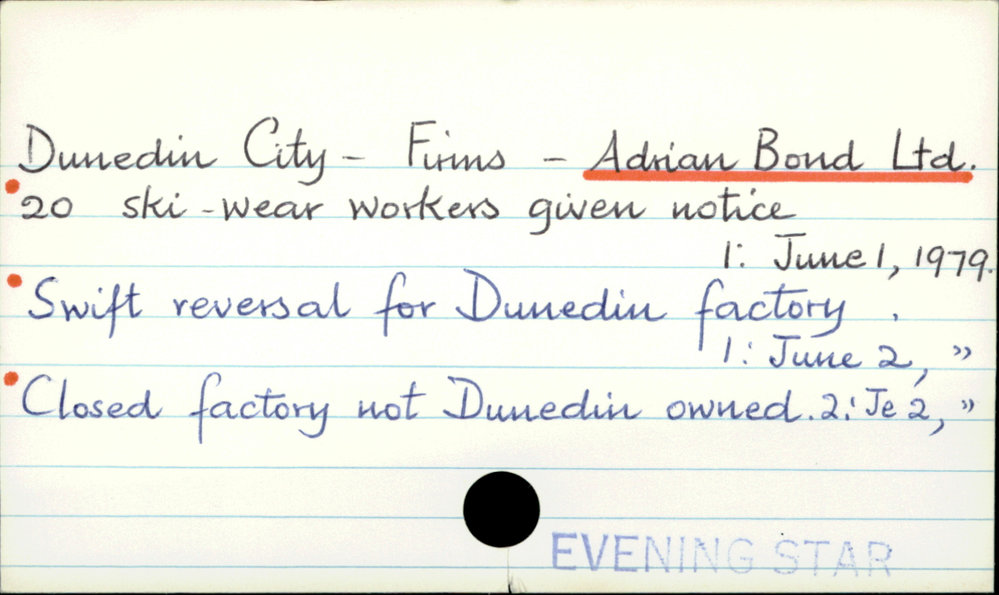 Dunedin City - Firms - Adrian Bond Ltd.
20 ski-wear workers given notice
1: June 1, 1979.
Swift reversal for Dunedin factory .
1: June 2, "
Closed factory not Dunedin owned. 2: Je 2, "
EVENING STAR